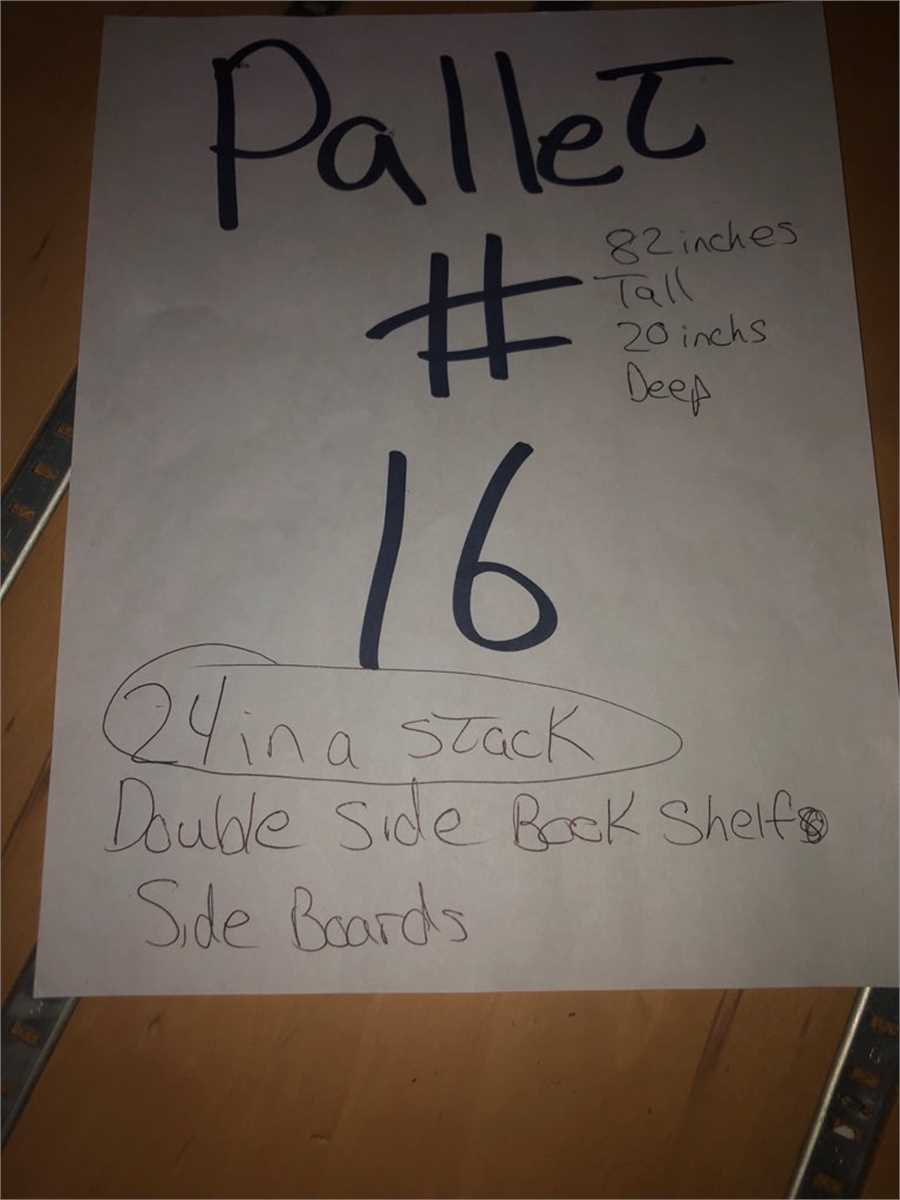 Pallet
#
82 inches
Tall
20 inchs
Deep
16
24 in a stack
Double Side Book Shelf
Side Boards